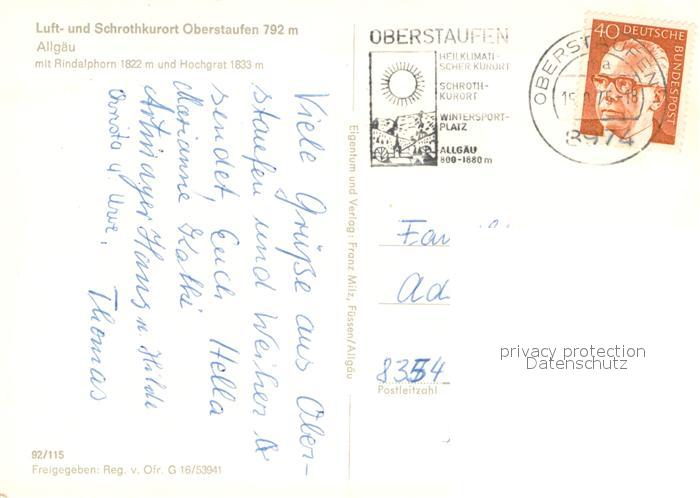 Luft- und Schrothkurort Oberstaufen 792 m
Allgäu
mit Rindalphorn 1822 m und Hochgrat 1833 m
Viele Grüße aus Ober-
staufen und Weiher
sendet Euch Hella
Marianne Kathi
Artmayer Hans u. Hilde
Thomas
92/115
Freigegeben: Reg. v. Ofr. G 16/53941
Eigentum und Verlag: Franz Milz, Füssen/Allgäu
OBERSTAUFEN
HEILKLIMATI-
SCHER KURORT
SCHROTH-
KURORT
WINTERSPORT-
PLATZ
ALLGÄU
800-1880 m
OBERSTAUFEN
a
8974
40 DEUTSCHE BUNDESPOST
Fam
Ad
8354
Postleitzahl
privacy protection
Datenschutz